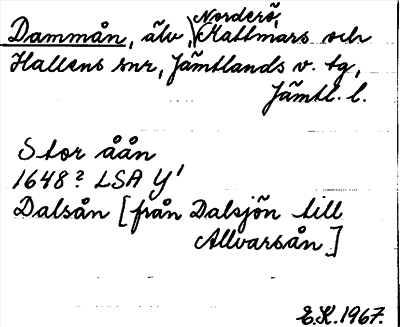 Norderö,
Dammån, älv, Mattmars och
Hallens snr, Jämtlands v. tg,
Jämtl. l.
Stor åån
1648? LSA Y'
Dalsån [från Dalsjön till
Allvarsån]
E.K. 1967.